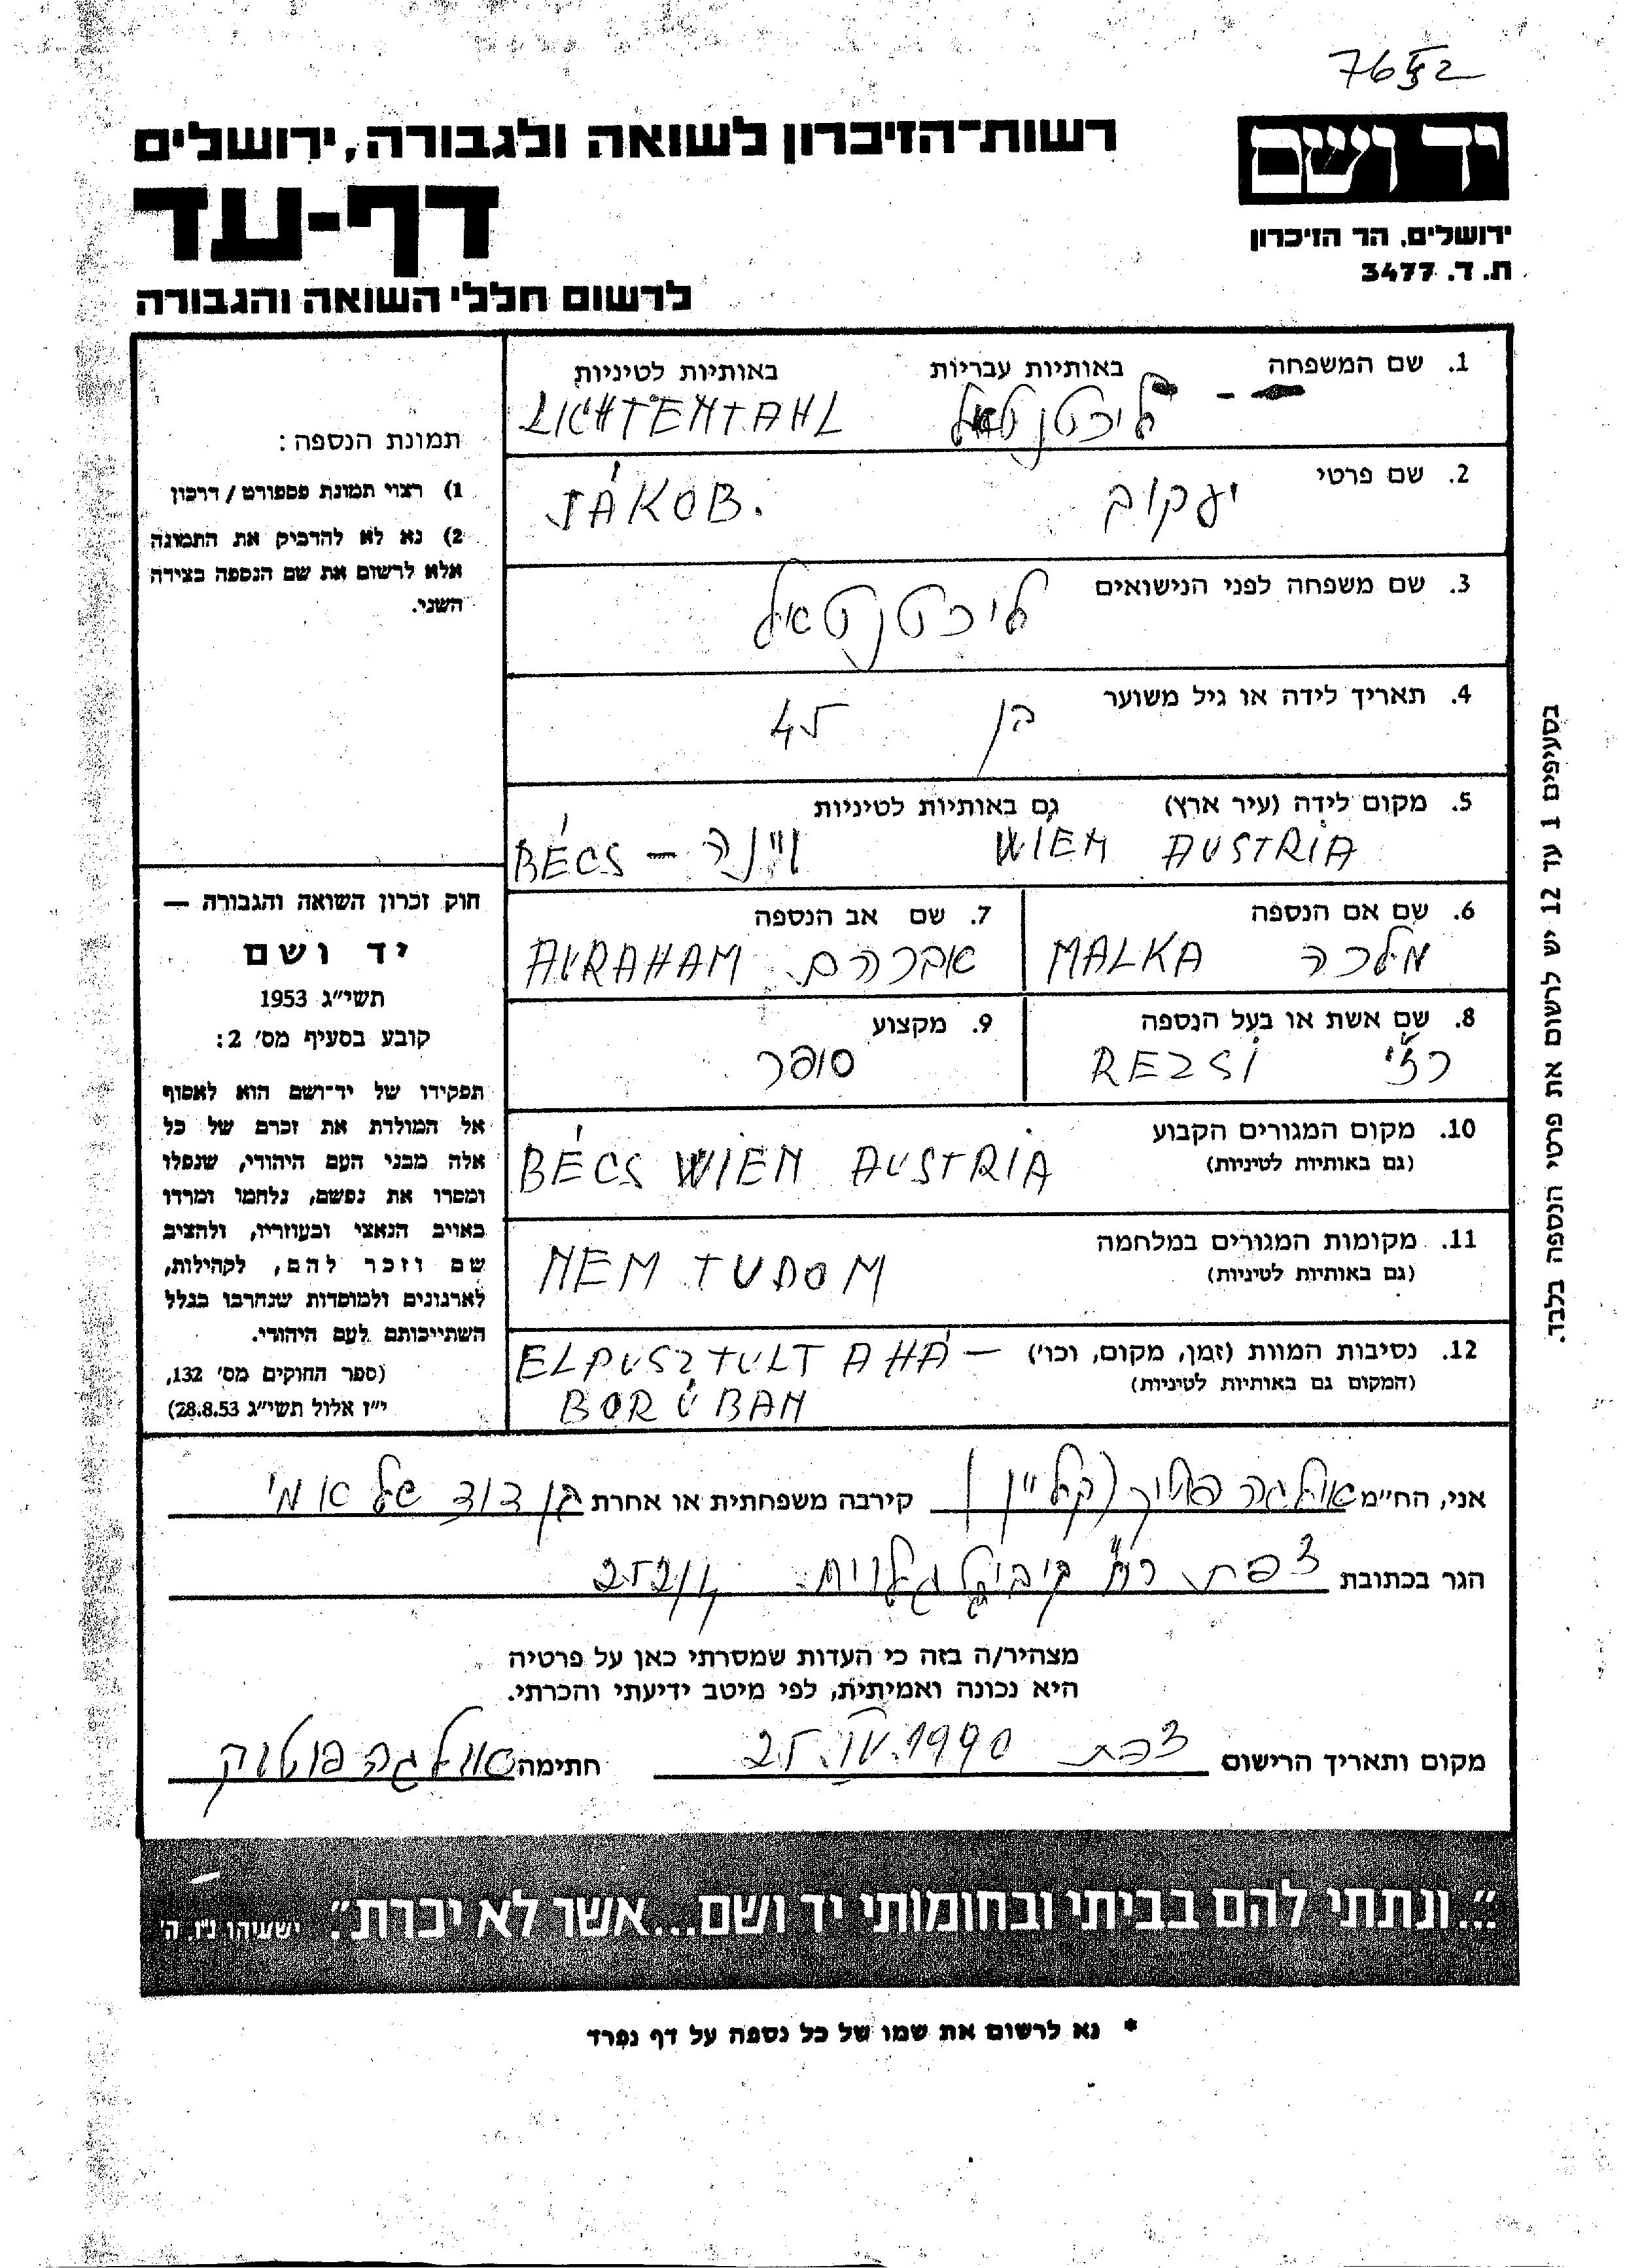 76
רשות-הזיכרון לשואה ולגבורה, ירושלים
דף-עד
לרשום חללי השואה והגבורה
יד ושם
ירושלים, הר הזיכרון
ת. ד. 3477
1. שם המשפחה באותיות עבריות באותיות לטיניות
ליכטנטאל LICHTENTAHL
2. שם פרטי יעקוב JÁKOB.
3. שם משפחה לפני הנישואים ליכטנטאל
4. תאריך לידה או גיל משוער בן 45
5. מקום לידה (עיר ארץ) גם באותיות לטיניות
WIEN AUSTRIA וינה – BÉCS
6. שם אם הנספה
מלכה MALKA
7. שם אב הנספה
אברהם AVRAHAM
8. שם אשת או בעל הנספה
רזי REZSI
9. מקצוע
סופר
10. מקום המגורים הקבוע
(גם באותיות לטיניות)
BÉCS WIEN AUSTRIA
11. מקומות המגורים במלחמה
(גם באותיות לטיניות)
NEM TUDOM
12. נסיבות המוות (זמן, מקום, וכו')
(המקום גם באותיות לטיניות)
ELPUSZTULT A HÁ –
BORÚBAN
תמונת הנספה:
1) רצוי תמונת פספורט / דרכון
2) נא לא להדביק את התמונה
אלא לרשום את שם הנספה בצידה
השני.
חוק זכרון השואה והגבורה —
יד ושם
תשי"ג 1953
קובע בסעיף מס' 2:
תפקידו של יד-ושם הוא לאסוף
אל המולדת את זכרם של כל
אלה מבני העם היהודי, שנפלו
ומסרו את נפשם, נלחמו ומרדו
באויב הנאצי ובעוזריו, ולהציב
שם וזכר להם, לקהילות,
לארגונים ולמוסדות שנחרבו בגלל
השתייכותם לעם היהודי.
(ספר החוקים מס' 132,
י"ז אלול תשי"ג 28.8.53)
בסעיפים 1 עד 12 יש לרשום את פרטי הנספה בלבד.
אני, הח"מ אולגה (קליין) קירבה משפחתית או אחרת בן דוד של אמי
הגר בכתובת צפת קיבוץ גלויות 252/4
מצהיר/ה בזה כי העדות שמסרתי כאן על פרטיה
היא נכונה ואמיתית, לפי מיטב ידיעתי והכרתי.
מקום ותאריך הרישום צפת 25.IV.1990 חתימה אולגה פוטוק
"...ונתתי להם בביתי ובחומותי יד ושם...אשר לא יכרת". ישעיהו נ"ו, ה'
* נא לרשום את שמו של כל נספה על דף נפרד